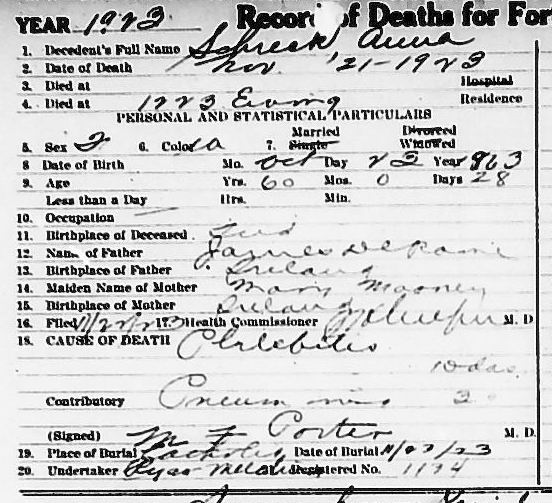 YEAR 1923 Record of Deaths for For
1. Decedent's Full Name Schreck Anna
2. Date of Death Nov. '21-1923
3. Died at Hospital
4. Died at 1223 Ewing Residence
PERSONAL AND STATISTICAL PARTICULARS
Married Divorced
5. Sex F 6. Color W 7. Single Widowed
8 Date of Birth Mo. Oct Day 23 Year 1863
9. Age Yrs. 60 Mos. 0 Days 28
Less than a Day Hrs. Min.
10. Occupation —
11. Birthplace of Deceased Ind
12. Name of Father James
13. Birthplace of Father Ireland
14. Maiden Name of Mother Mary Mooney
15. Birthplace of Mother Ireland
16. Filed 11/22/23 17. Health Commissioner M. D.
18. CAUSE OF DEATH Phlebitis
10 das.
Contributory Pneumonia 3
(Signed) M F Porter M. D.
19. Place of Burial Catholic Date of Burial 11/23/23
20. Undertaker Registered No. 1174